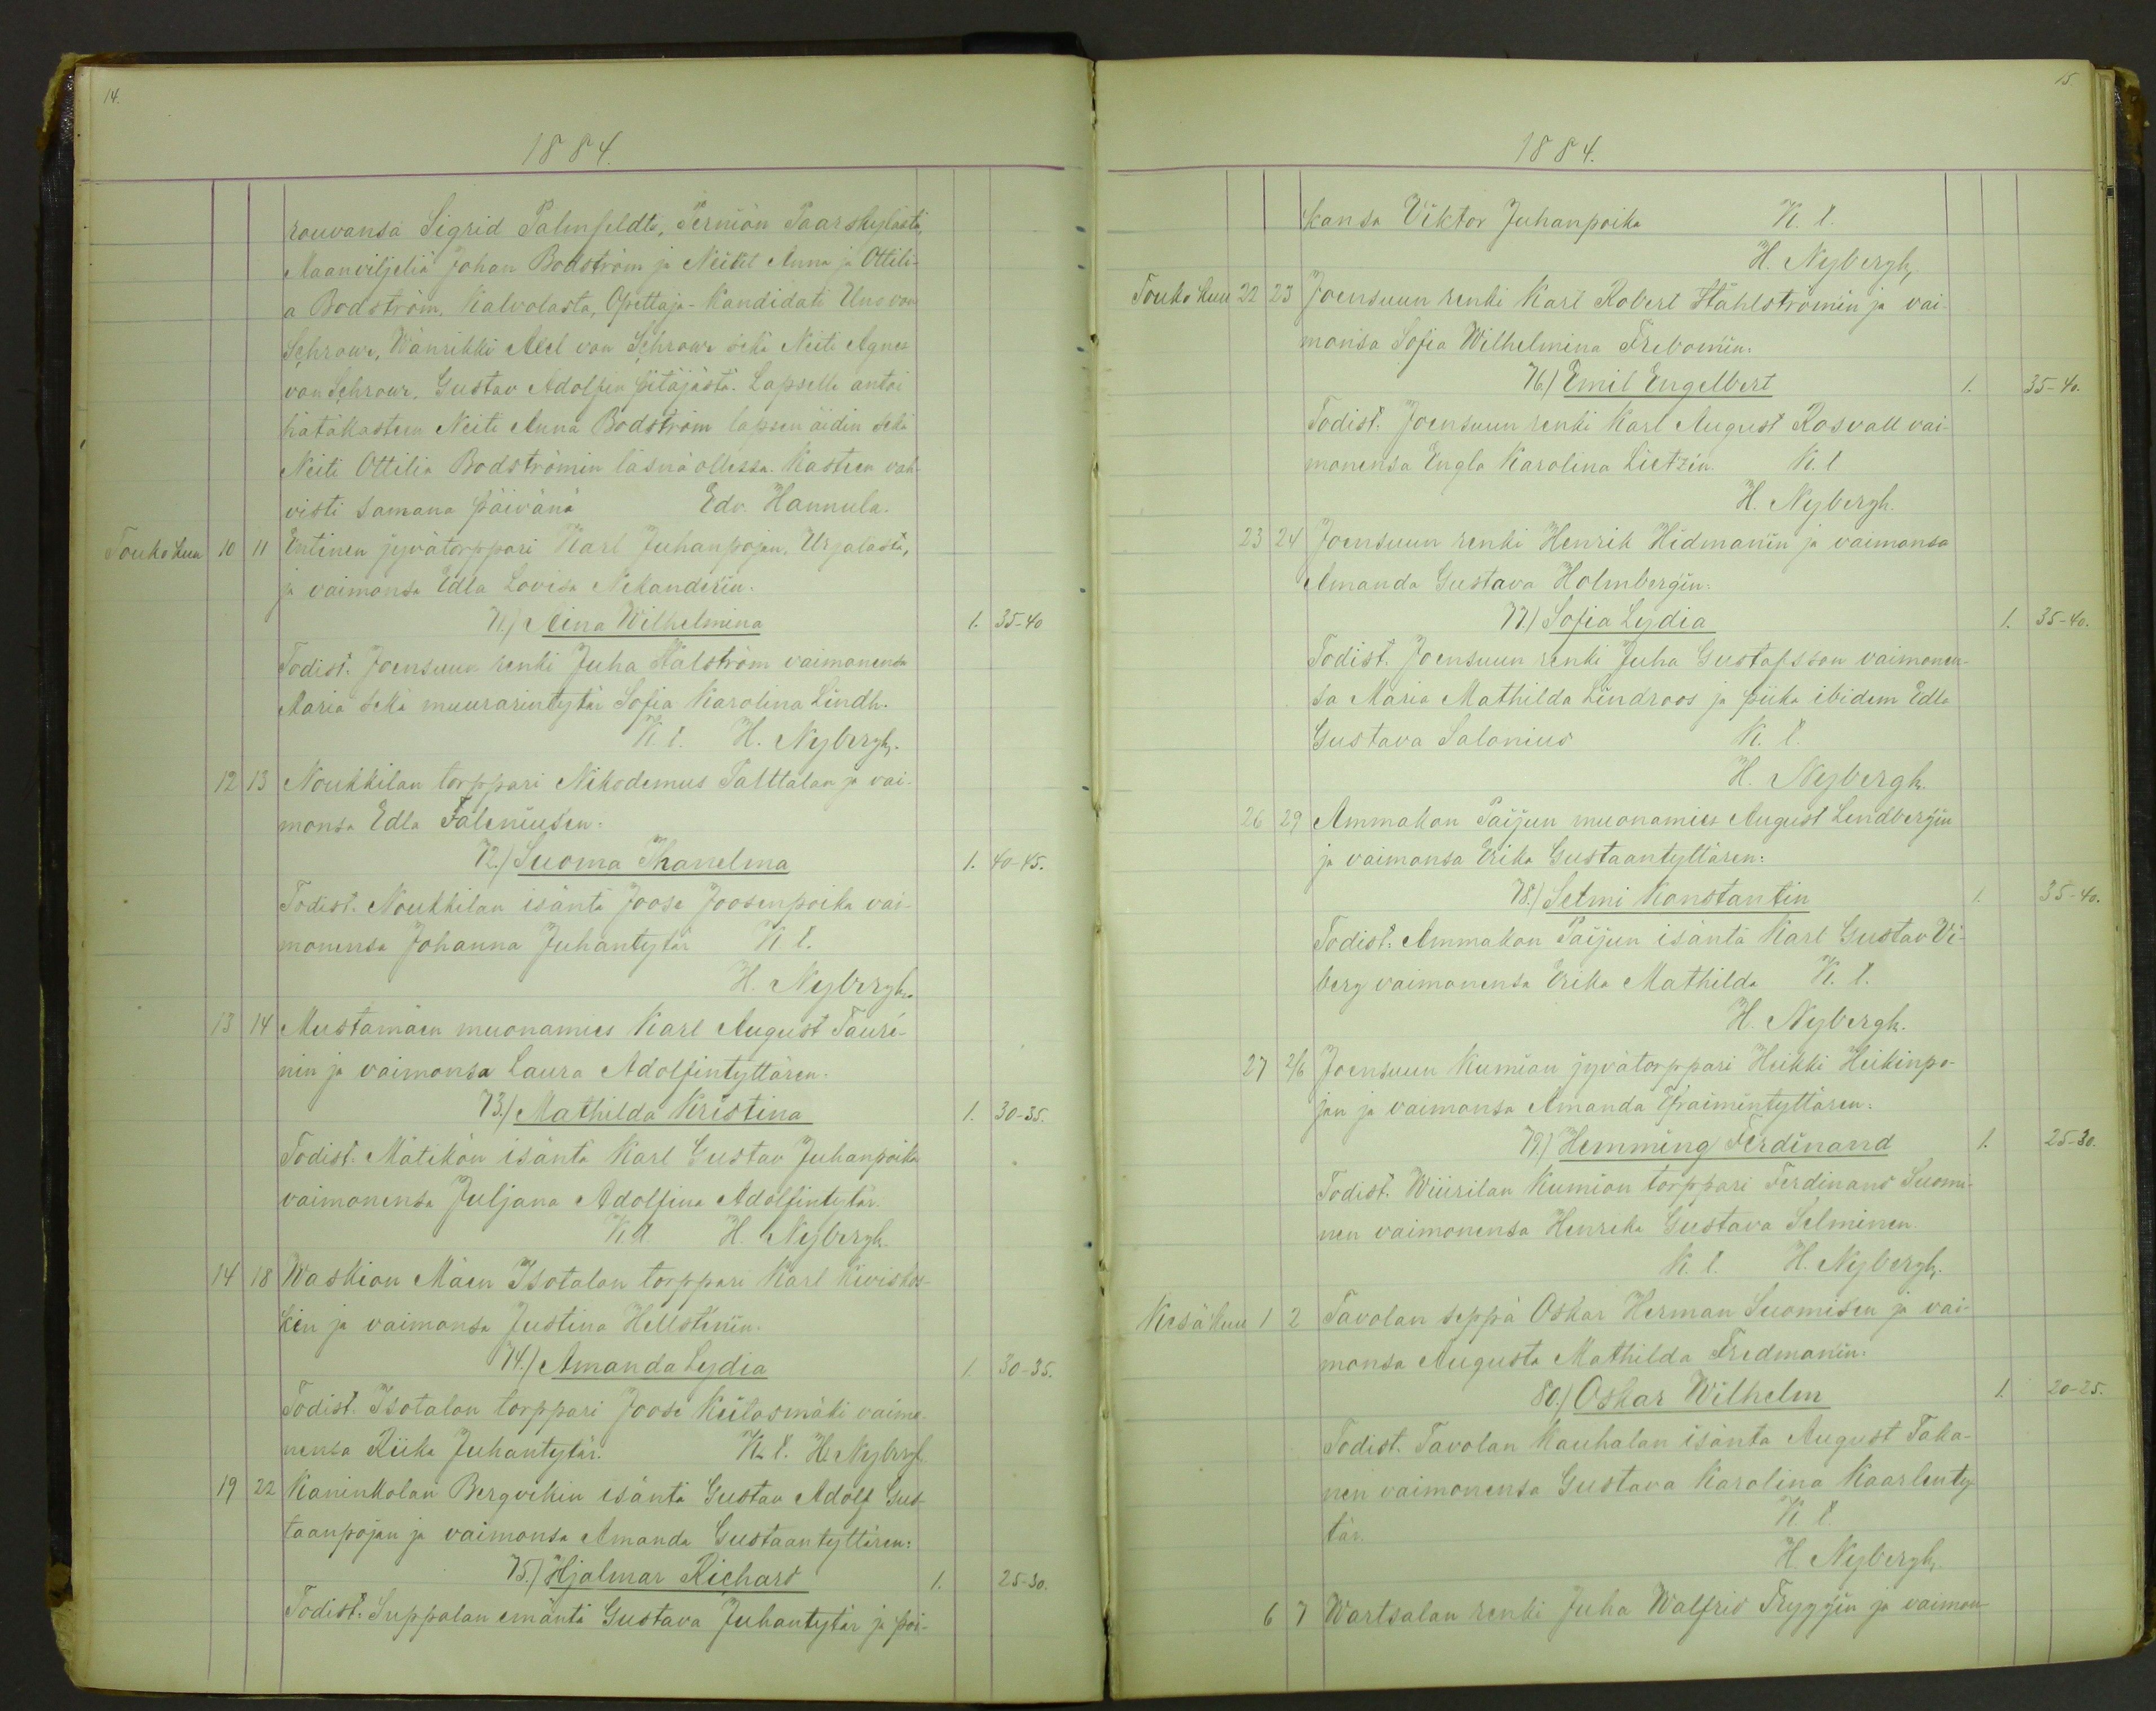 14.
1884.
rouvansa Sigrid Palmfeldts, Perniön Paarskylästä,
Maanviljeliä Johan Bodström ja Neidet Anna ja Ottili-
a Bodström, Kalvolasta, Opettaja-Kandidati Uno von
Schrowe, Wänrikki Axel von Schrowe sekä Neiti Agnes
von Schrowe, Gustav Adolfin pitäjästä. Lapselle antoi
hätäkasteen Neiti Anna Bodström lapsen äidin sekä
Neiti Ottilia Bodströmin läsnä ollessa. Kasteen vah-
visti samana päivänä Edv. Hannula.
Toukokuu 10 11 Entinen jyvätorppari Karl Juhanpojan, Urjalasta,
ja vaimonsa Edla Lovisa Nikanderin.
71.) Aina Wilhelmina 1. 35-40
Todist. Joensuun renki Juha Stålström vaimonensa
Maria sekä muurarintytär Sofia Karolina Lindh.
K. l. H. Nybergh.
12 13 Noukkilan torppari Nikodemus Talttalan ja vai-
monsa Edla Faleniusen.
72.) Suoma Ihanelma 1. 40-45.
Todist. Noukkilan isäntä Joose Joosenpoika vai-
monensa Johanna Juhantytär K. l.
H. Nybergh.
13 14 Mustamäen muonamies Karl August Tauré-
nin ja vaimonsa Laura Adolfintyttären.
73.) Mathilda Kristina 1. 30-35.
Todist. Mätikön isäntä Karl Gustav Juhanpoika
vaimonensa Juljana Adolfina Adolfintytär.
K. l. H. Nybergh.
14 18 Waskion Mäen Isotalon torppari Karl Kivisköl-
kin ja vaimonsa Justina Hellsténin.
74.) Amanda Lydia 1. 30-35.
Todist. Isotalon torppari Joose Keitosmäki vaimo-
nensa Riika Juhantytär. K. l. H. Nybergh
19 22 Kaninkolan Bergvikin isäntä Gustav Adolf Gus-
taanpojan ja vaimonsa Amanda Gustaantyttären:
75.) Hjalmar Richard 1. 25-30.
Todist. Suppalan emäntä Gustava Juhantytär ja poi-
15
1884.
kansa Viktor Juhanpoika K. l.
H. Nybergh.
Toukokuu 22 23 Joensuun renki Karl Robert Ståhlströmin ja vai-
monsa Sofia Wilhelmina Frebomin:
76.) Emil Engelbert 1. 35-40.
Todist. Joensuun renki Karl August Rosvall vai-
monensa Engla Karolina Lietzén. K. l.
H. Nybergh.
23 24 Joensuun renki Henrik Hidmanin ja vaimonsa
Amanda Gustava Holmbergin:
77.) Sofia Lydia 1. 35-40.
Todist. Joensuun renki Juha Gustafsson vaimonen-
sa Maria Mathilda Lindroos ja piika ibidem Edla
Gustava Salonius K. l.
H. Nybergh.
26 29 Ammakon Paijun muonamies August Lindbergin
ja vaimonsa Erika Gustaantyttären:
78.) Selmi Konstantin 1. 35-40.
Todist. Ammakon Paijun isäntä Karl Gustav Vi-
berg vaimonensa Erika Mathilda K. l.
H. Nybergh.
27 2/6 Joensuun Kumion jyvätorppari Heikki Heikinpo-
jan ja vaimonsa Amanda Efraimintyttären:
79.) Hemming Ferdinand 1. 25-30.
Todist. Wiurilan Kumion torppari Ferdinand Suomi-
nen vaimonensa Henrika Gustava Selminen
K. l. H. Nybergh.
Kesäkuu 1 2 Tavolan seppä Oskar Herman Suomisen ja vai-
monsa Augusta Mathilda Fredmanin:
80.) Oskar Wilhelm 1. 20-25.
Todist. Tavolan Kauhalan isäntä August Taka-
nen vaimonensa Gustava Karolina Kaarlenty-
tär. K. l.
H. Nybergh.
6 7 Wartsalan renki Juha Walfrid Tryggin ja vaimon-